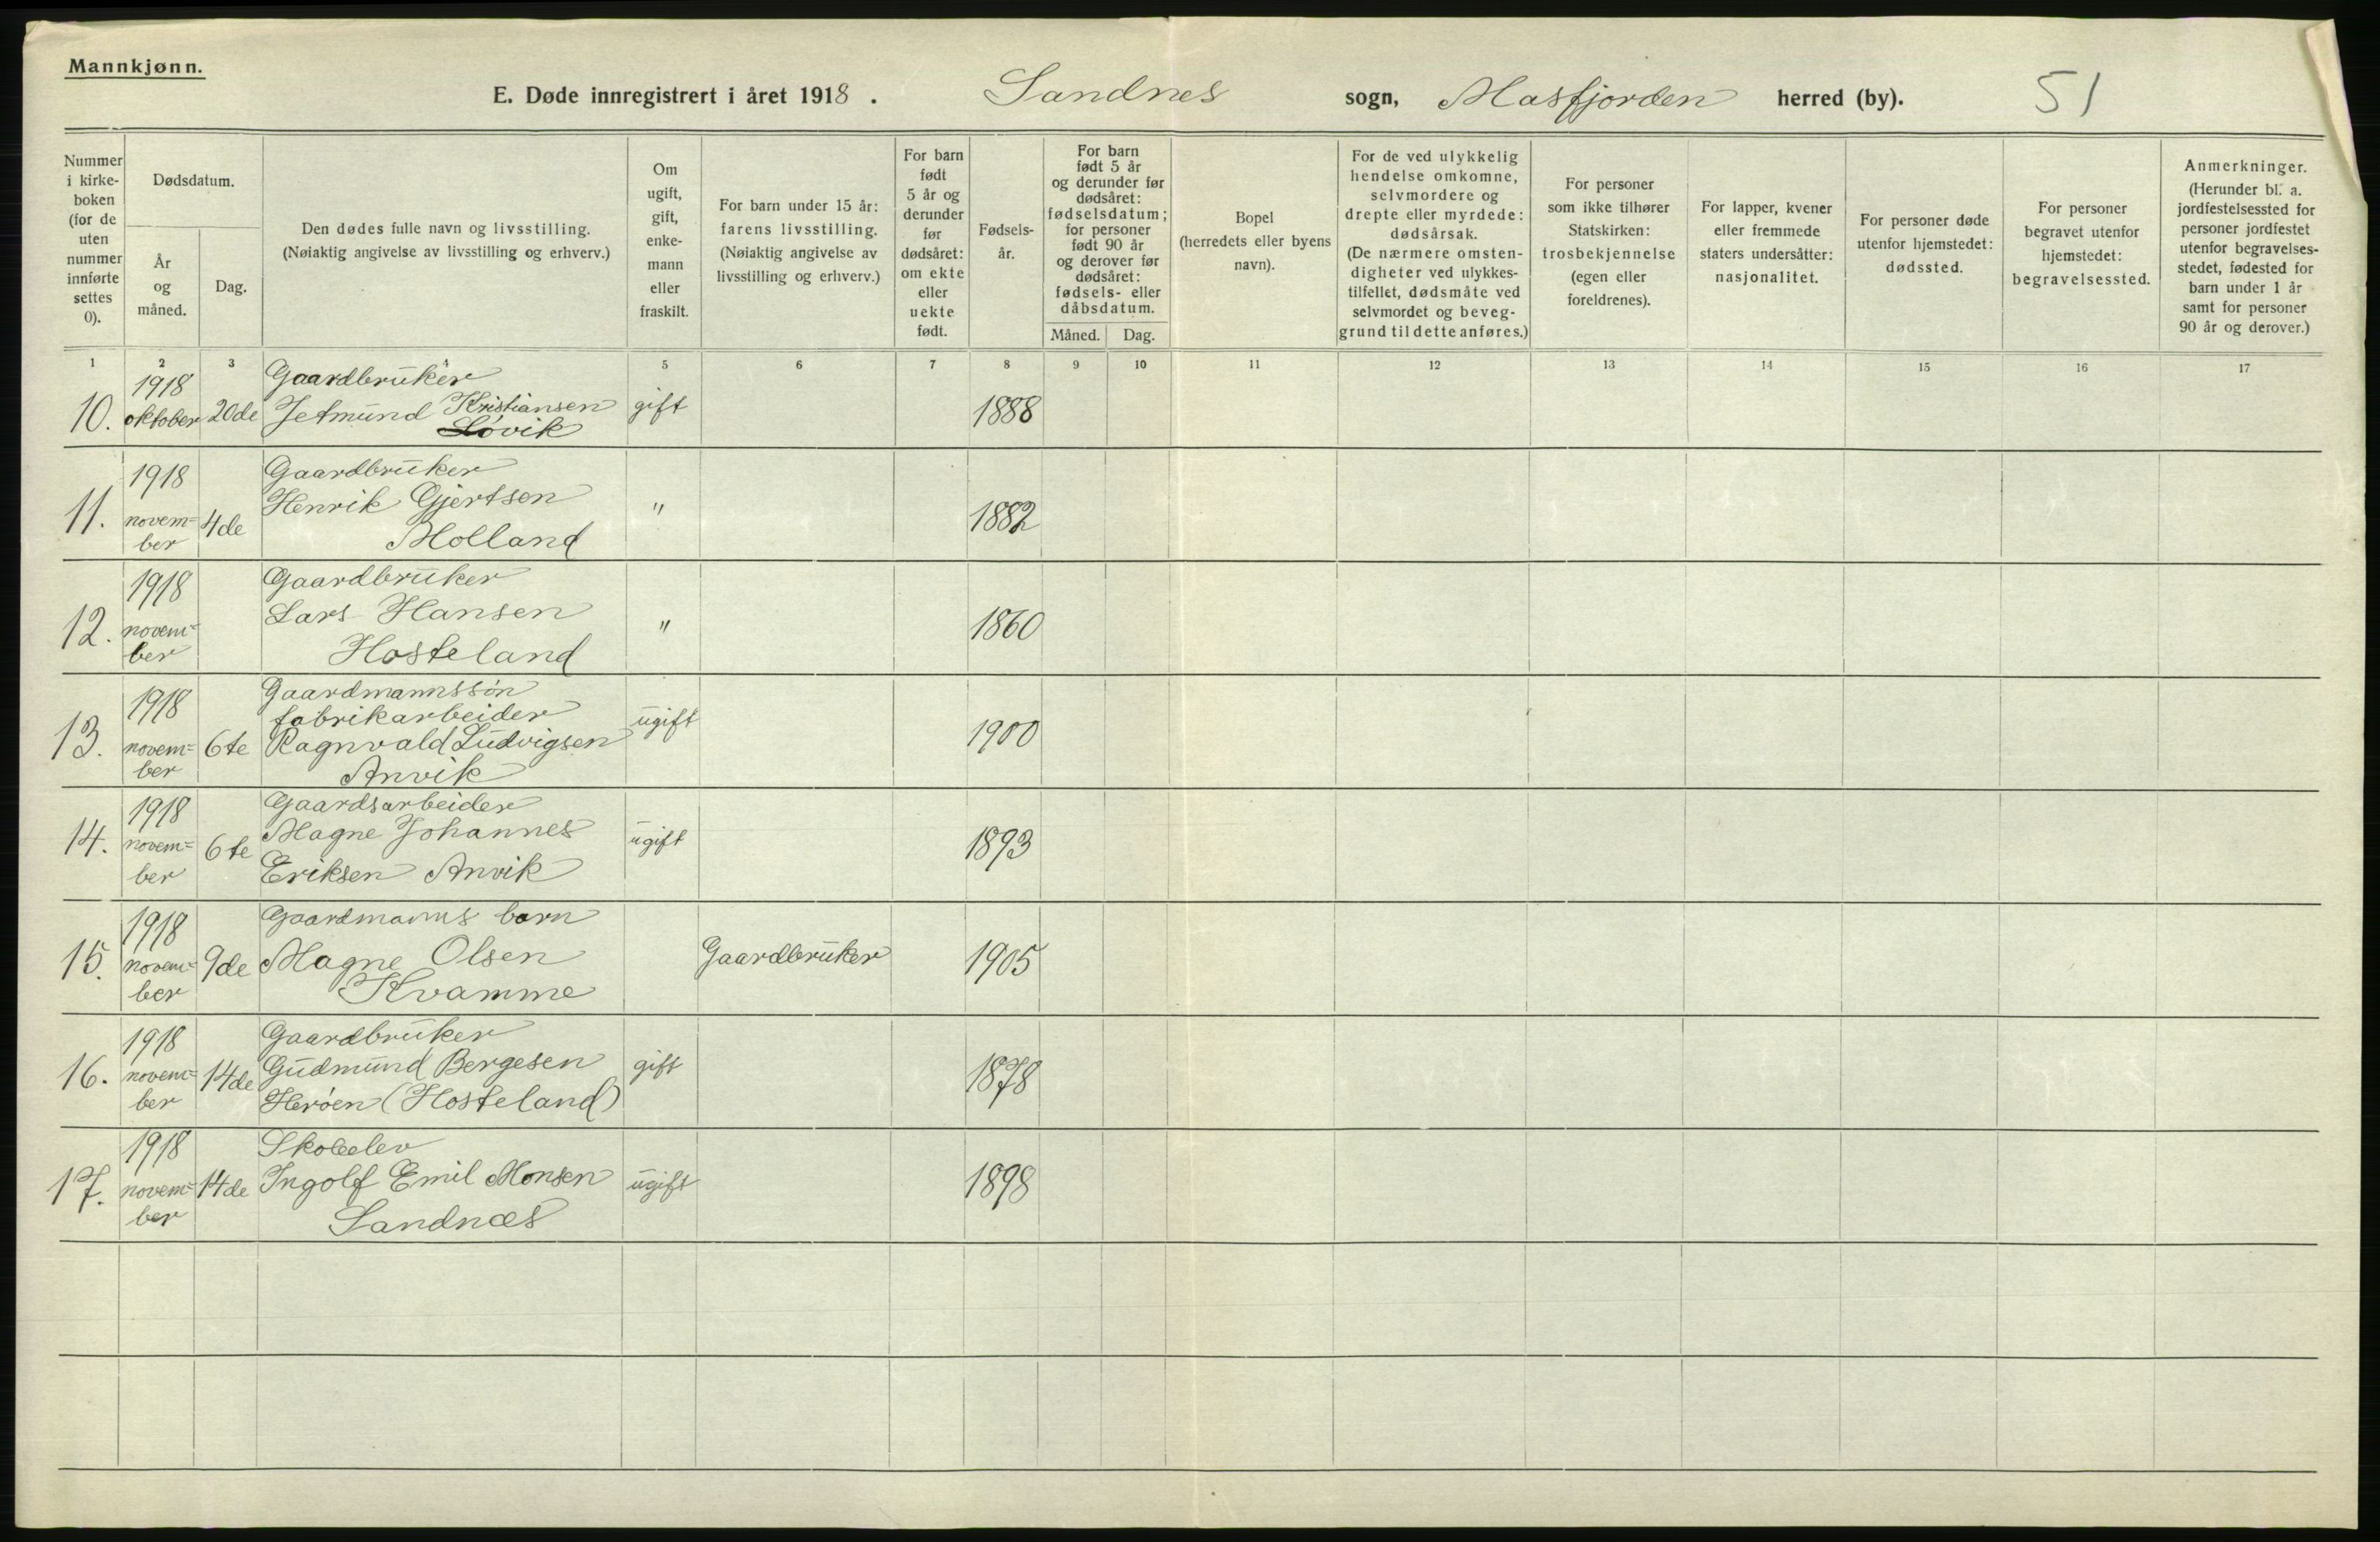 Mannkjønn.
E. Døde innregistrert i året 1918. Sandnes sogn, Masfjorden herred (by). 51
Nummer i kirke-boken (for de uten nummer innførte settes 0).
Dødsdatum.
År og måned.
Dag.
Den dødes fulle navn og livsstilling.
(Nøiaktig angivelse av livsstilling og erhverv.)
Om ugift, gift, enke-mann eller fraskilt.
For barn under 15 år: farens livsstilling. (Nøiaktig angivelse av livsstilling og erhverv.)
For barn født 5 år og derunder før dødsåret: om ekte eller uekte født.
Fødsels-år.
For barn født 5 år og derunder før dødsåret: fødselsdatum; for personer født 90 år og derover før dødsåret: fødsels- eller dåbsdatum.
Måned. Dag.
Bopel (herredets eller byens navn).
For de ved ulykkelig hendelse omkomne, selvmordere og drepte eller myrdede: dødsårsak. (De nærmere omsten-digheter ved ulykkes-tilfellet, dødsmåte ved selvmordet og beveg-grund til dette anføres.)
For personer som ikke tilhører Statskirken: trosbekjennelse (egen eller foreldrenes).
For lapper, kvener eller fremmede staters undersåtter: nasjonalitet.
For personer døde utenfor hjemstedet: dødssted.
For personer begravet utenfor hjemstedet: begravelsessted.
Anmerkninger. (Herunder bl. a. jordfestelsessted for personer jordfestet utenfor begravelses-stedet, fødested for barn under 1 år samt for personer 90 år og derover.)
1 2 3 5 6 7 8 9 10 11 12 13 14 15 16 17
1918 Gaardbruker
10. oktober 20de Jetmund Kristiansen gift 1888
Løvik
1918 Gaardbruker
11. novem= 4de Henrik Gjertsen " 1882
ber Molland
1918 Gaardbruker
12. novem= Lars Hansen " 1860
ber Hosteland
1918 Gaardmannssøn
fabrikarbeider
13. novem= 6te Ragnvald Ludvigsen ugift 1900
ber Anvik
1918 Gaardsarbeider
14. novem= 6te Magne Johannes ugift 1893
ber Eriksen Anvik
1918 Gaardmanns barn
15. novem= 9de Magne Olsen Gaardbruker 1905
ber Kvamme
1918 Gaardbruker
16. novem= 14de Gudmund Bergesen gift 1878
ber Herøen (Hosteland)
1918 Skoleelev
17. novem= 14de Ingolf Emil Monsen ugift 1898
ber Sandnæs